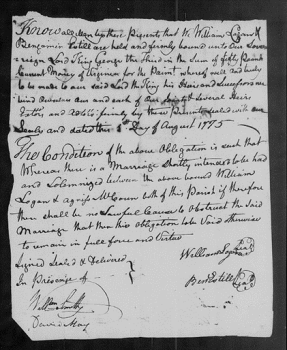 Know all men by these Presents that We William Logan &
Benjamin Estill are held and firmly bound unto Our Sover
reign Lord King George the third in the Sum of fifty Pounds
Current Money of Virginia for the Paint whereof well and truly
to be made to our said Lord the King his Heirs and Successors we
bind ourselves our and each of our Joint & Several Heirs
Extrs and Admrs firmly by these Presents sealed with our
Seals and dated this 1 Day of August 1775
The Condition of the above Obligation is such that
Whereas there is a Marriage Shortly intended to be had
and Solemnized between the above bound William
Logan & Agnes McCown both of this Parish if therefore
there shall be no Lawful Cause to Obstruct the said
Marriage that then this Obligation to be Void otherwise
to remain in full force and Virtue
Signed Seald & Delivered
In Presence of
William Logan
Ben Estill
David May